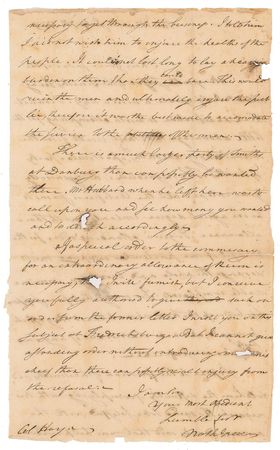 necessary to get through the business. I told him
I did not wish him to injure the healths of the
people. It could not last long to lay a heavier
burden on them than they could bear. This would
ruin the men and ultimately injure the publick
service therefore it was the best
the service to the of the men
There is a much larger party of Smiths
at Danbury than can possibly be wanted
there. Mr Hubbard when he left here was to
call upon you and see how many you wanted
and to accordingly
A special order to the commissary
for an extraordinary allowance of Rum is
necessary. I will furnish, but I conceive
you fully authorised to give such an
order from the former letter I wrote you on the
subject at Fredericksburg and I cannot give
a standing order without introducing
than there can possibly result injury from
the refusal.
I am Sir
Your most obedient
humble Serv
Nath Greene
Col Hay